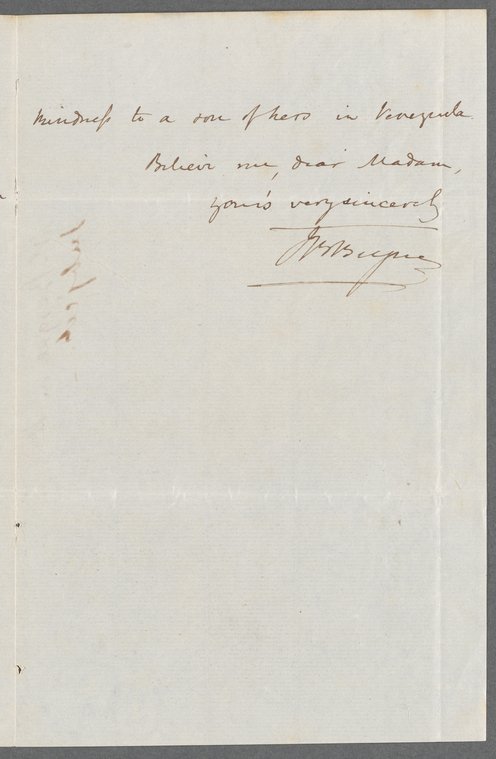 kindness to a son of hers in Venezuela.
Believe me, dear Madam,
yours very sincerely